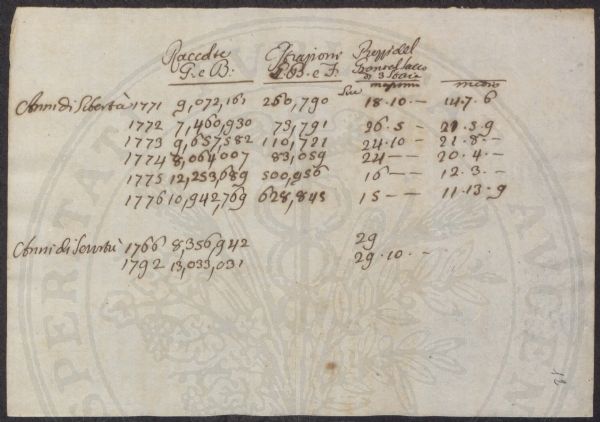 Raccolte Estrazioni Prezzi del
G. e B. G. B. e F. Grano al Sacco
di 3 Staia
Lire massimo medio
Anni di libertà 1771 9,072,161 260,790 18.10.— 14.7.6
1772 7,460,930 73,791 26.5— 21.5.9
1773 9,657,582 110,721 24.10— 21.8.—
1774 8,064,007 83,059 24—— 20.4.—
1775 12,253,689 500,956 16—— 12.3.—
1776 10,942,769 628,845 15—— 11.13.9
Anni di Servitù 1766 8,356,942 29
1792 13,033,031 29.10.—
PERITAT AUGEN